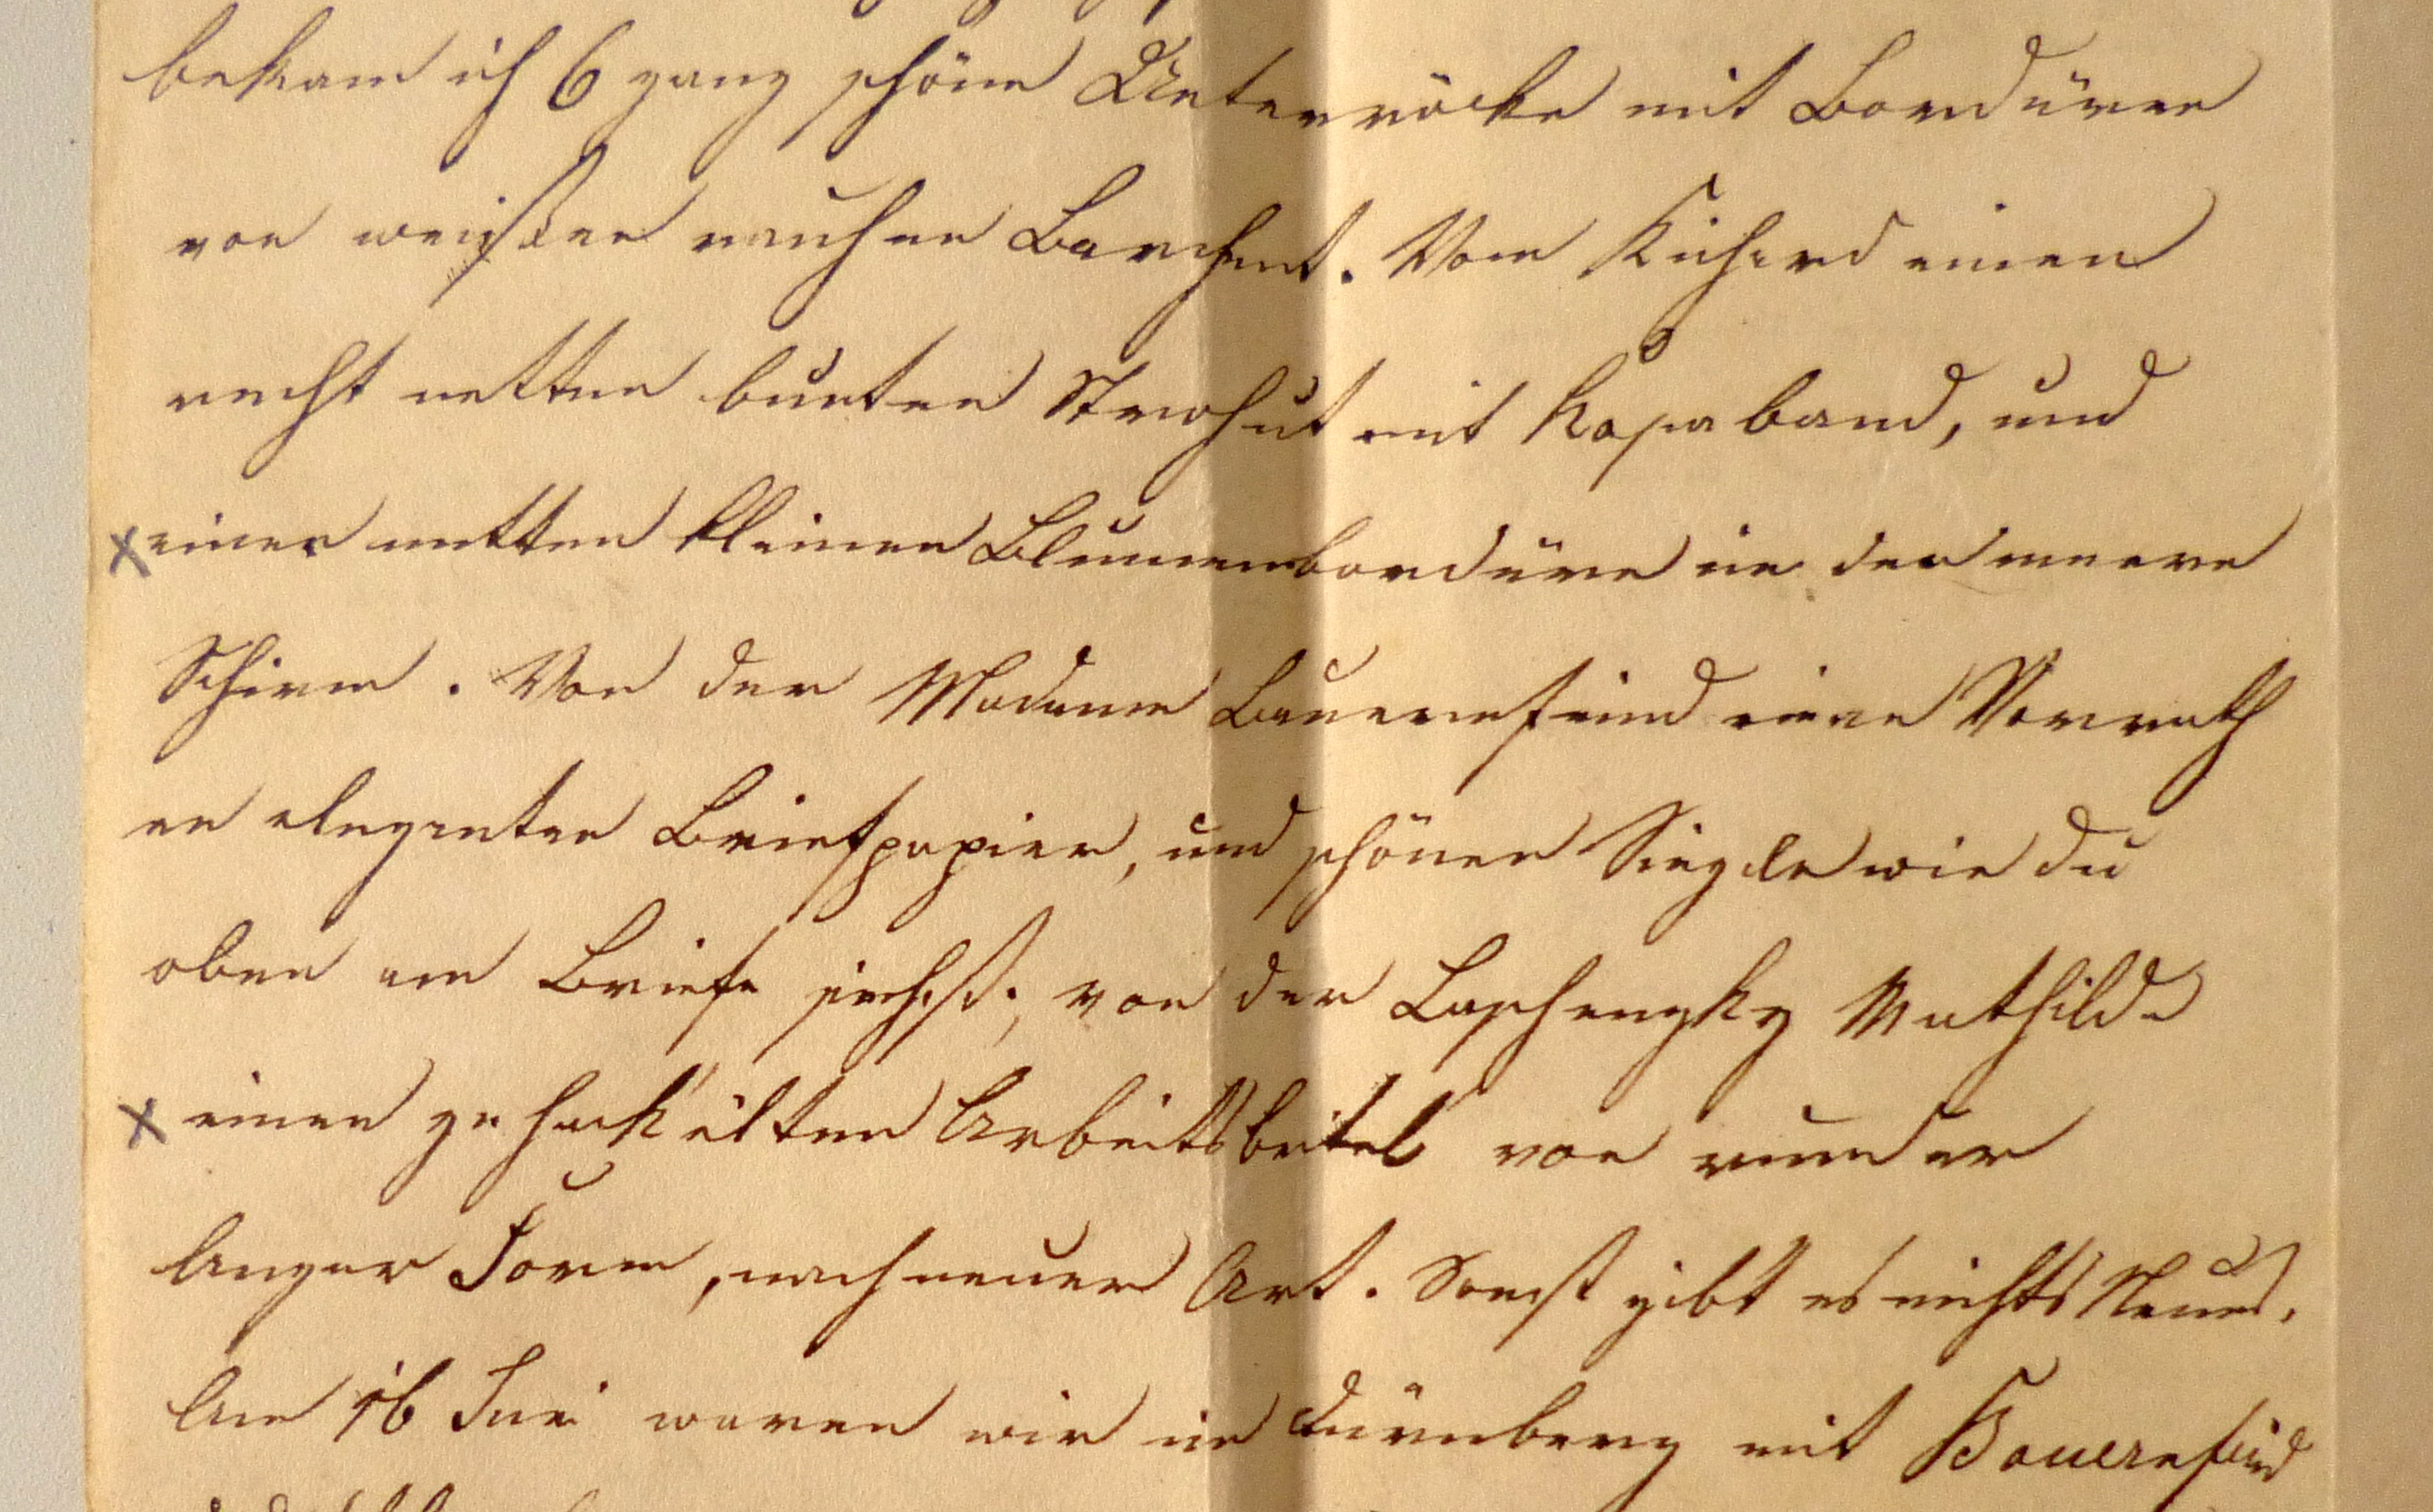 bekam ich 6 ganz schöne Unterröcke mit Bordüren
von weißen rauhen Barchent. Vom Richard einen
recht netten bunten Strohhut mit Rosa band, und
einer netten kleinen Blumenbordüre in den innern
Schirm. Von der Madame Bauernfeind einen Vorrath
an eleganten Briefpapier, und schönen Siegeln wie du
oben am Briefe siehst; von der Mathilde
einen gehäckelten Arbeitsbeitel von runder
langer Form, nach neuer Art. Sonst gibt es nichts Neues.
Am 16 Juni waren wir in Dürnberg mit Bauernfeind